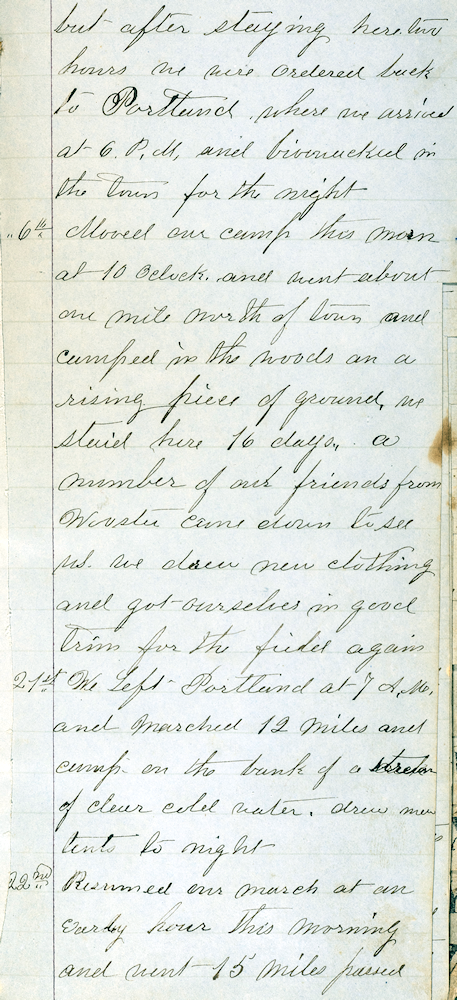 but after staying here two
hours we were ordered back
to Portland where we arrived
at 6. P, M, and bivouacked in
the town for the night
"6th Moved our camp this morn
at 10 Oclock. and went about
one mile north of town and
camped in the woods on a
rising piece of ground, we
staid here 16 days,. a
number of our friends from
Wooster came down to see
us. we drew new clothing
and got ourselves in good
trim for the field again
21st We Left Portland at 7 A, M,
and marched 12 miles and
camp on the bank of a stream
of clear cold water. drew new
tents to night
22nd Resumed our march at an
early hour this morning
and went 15 miles passed